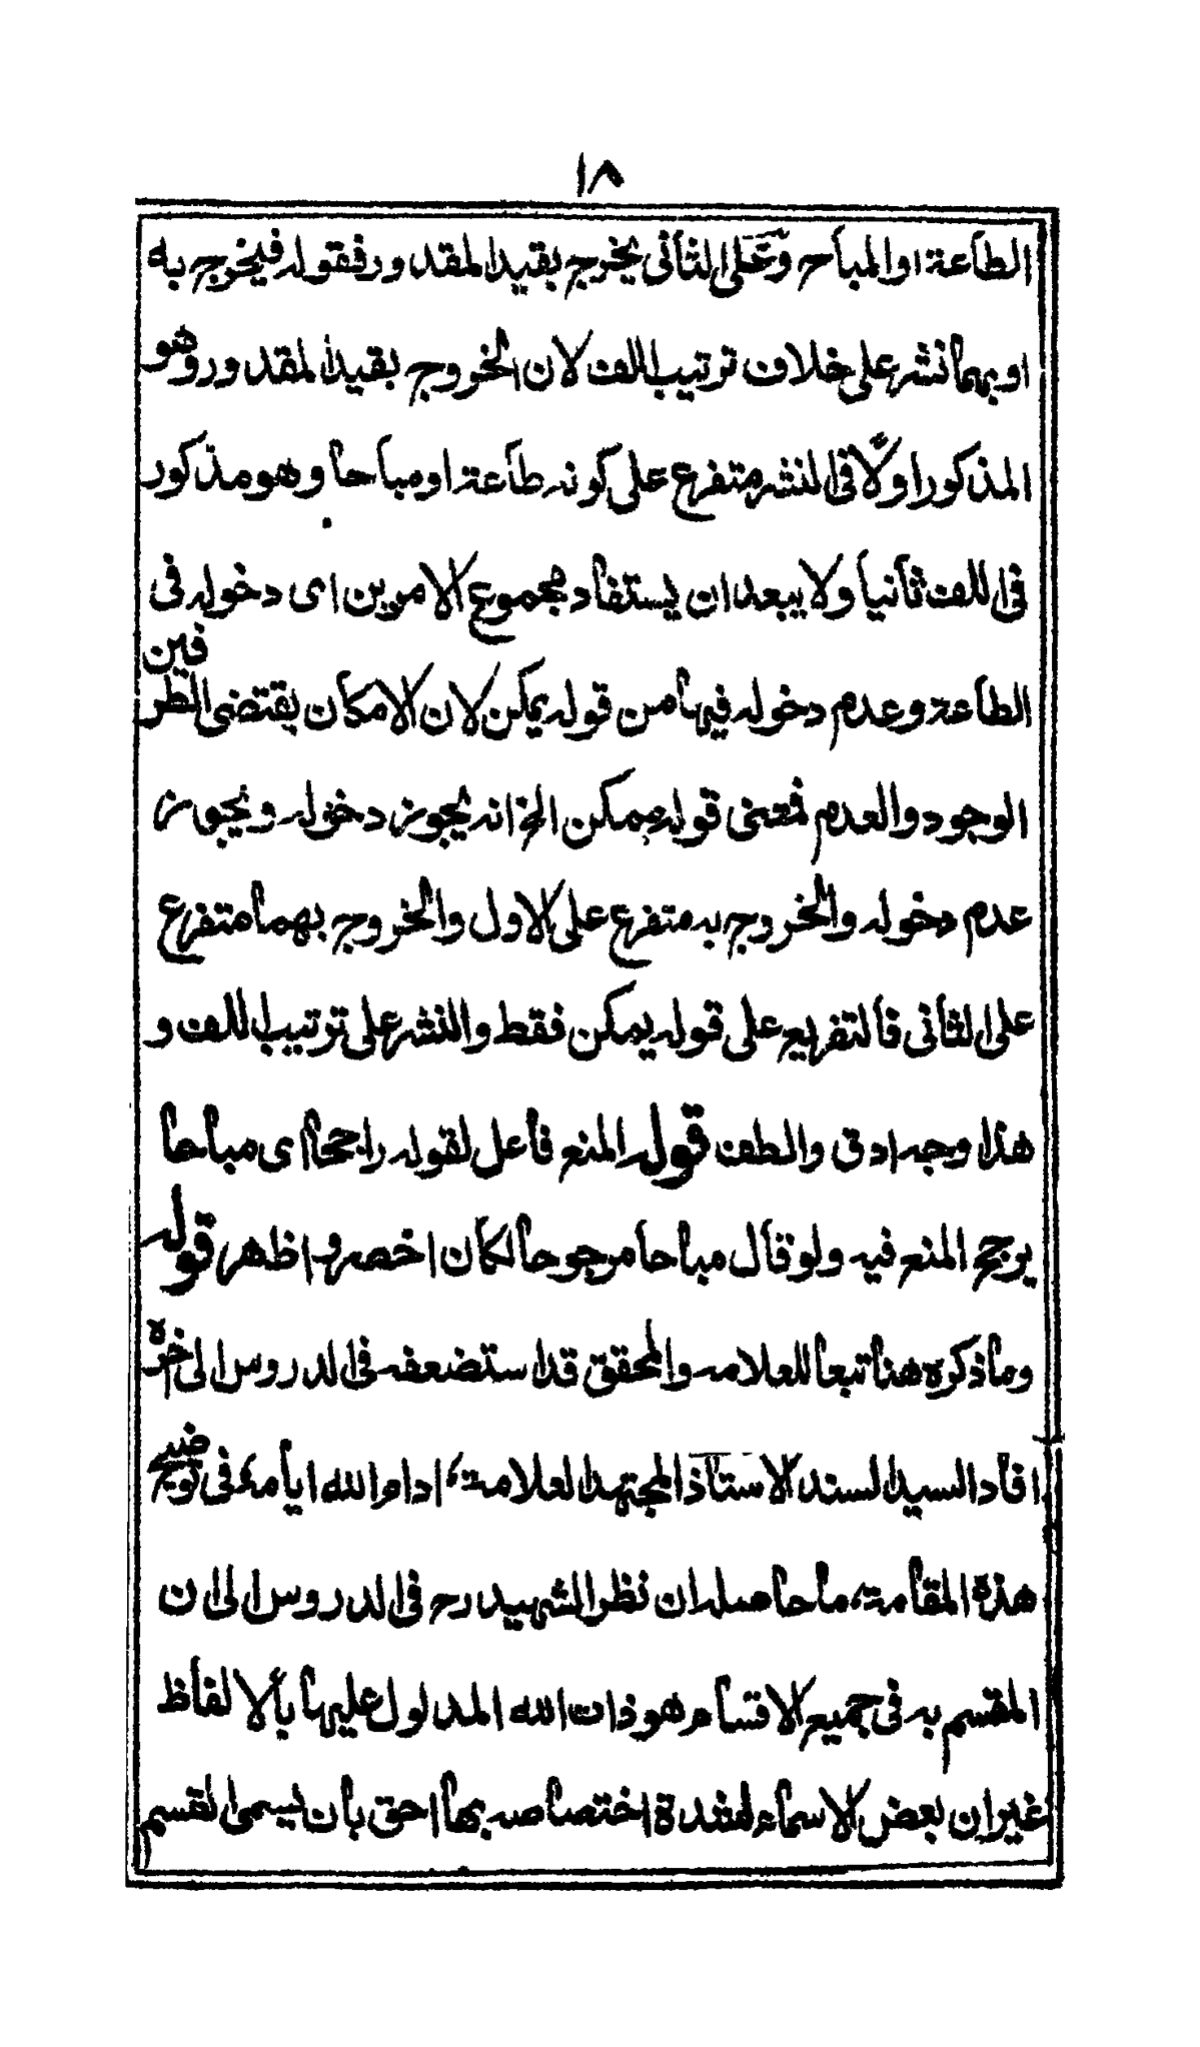 ١٨
الطاعة او المباح وعلى الثانى يخرج بقيد المقدور فقوله فيخرج به
او بهما نشر على خلاف ترتيب اللف لان الخروج بقيد المقدور وهو
المذكور اولا فى النشر متفرع على كونه طاعة او مباحا وهو مذكور
فى اللف ثانيا ولا يبعد ان يستفاد مجموع الامرين اى دخوله فى
الطاعة وعدم دخوله فيها من قوله يمكن لان الامكان يقتضى الطرفين
الوجود والعدم فمعنى قوله يمكن الخ انه يجوز دخوله ويجوز
عدم دخوله والخروج به متفرع على الاول والخروج بهما متفرع
على الثانى فالتفريع على قوله يمكن فقط والنشر على ترتيب اللف و
هذا وجه ادق والطف قوله المنع فاعل لقوله راجحا اى مباحا
يرجح المنع فيه ولو قال مباحا مرجوحا لكان اخصر واظهر قوله
وما ذكره هنا تبعا للعلامه والمحقق قد استضعفه فى الدروس الى اخره
افاد السيد السند الاستاذ المجتهد العلامة ادام الله ايامه فى توضيح
هذه المقامة ما حاصله ان نظر الشهيد رح فى الدروس الى ان
المقسم به فى جميع الاقسام هو ذات الله المدلول عليها بالالفاظ
غير ان بعض الاسماء لشدة اختصاصه بها احق بان يسمى القسم